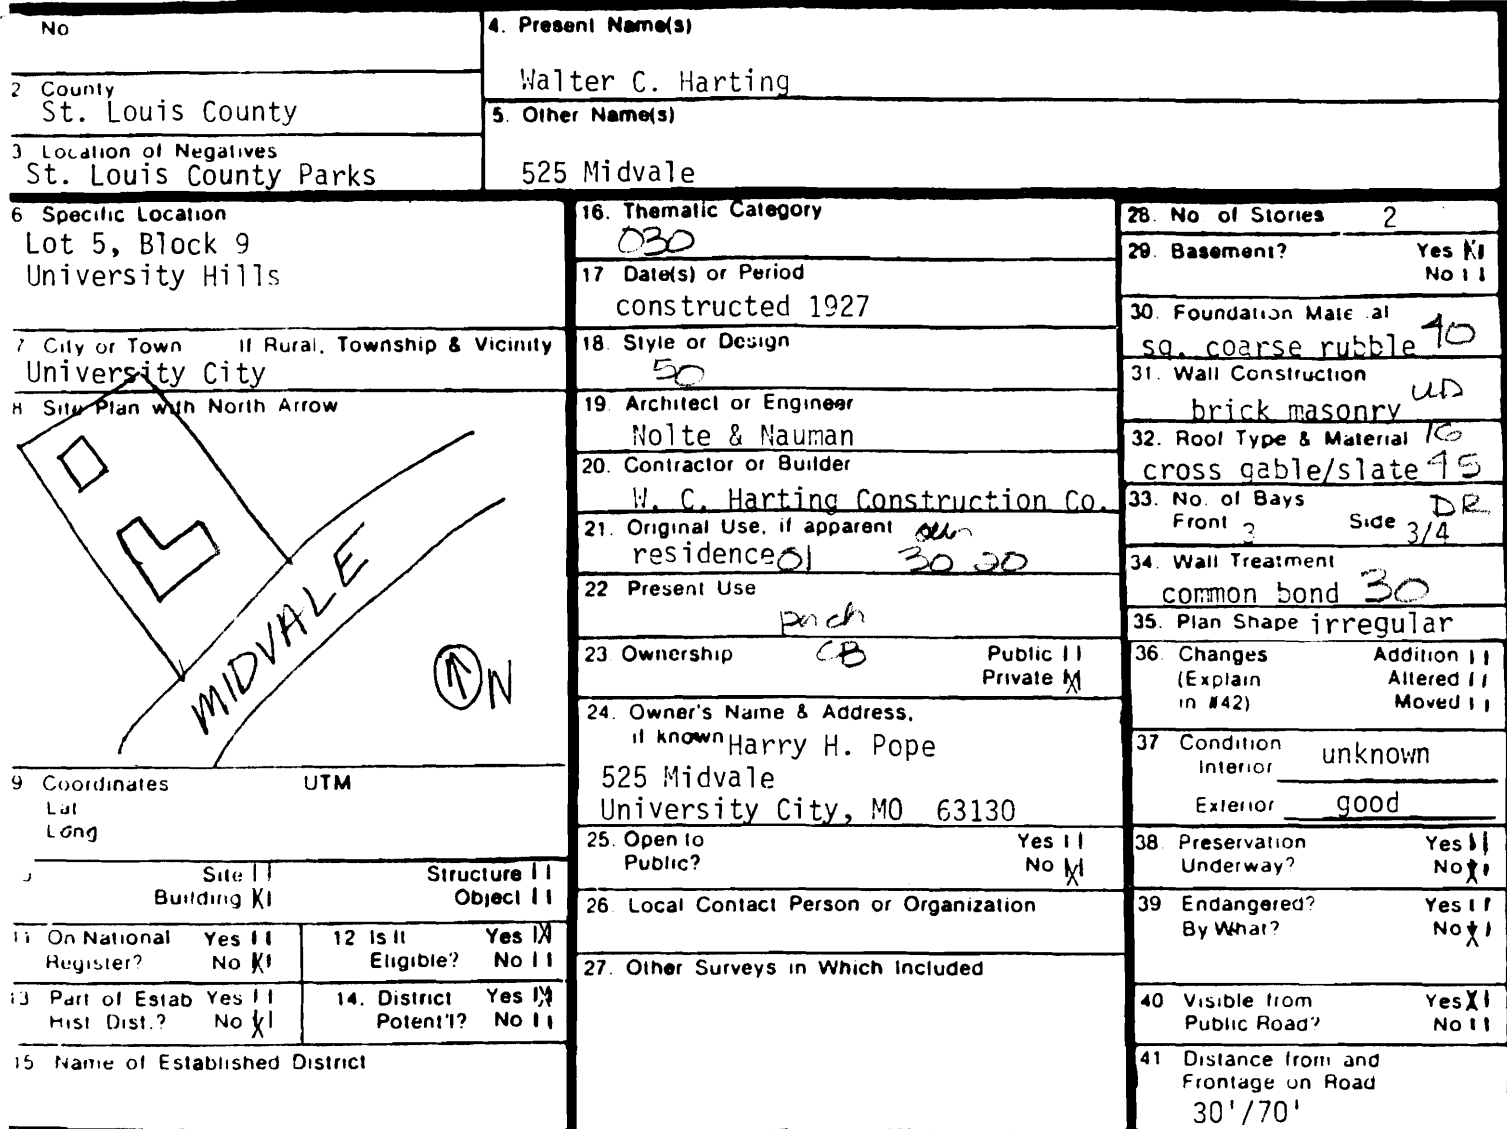 No
2 County
St. Louis County
3 Location of Negatives
St. Louis County Parks
4. Present Name(s)
Walter C. Harting
5. Other Name(s)
525 Midvale
6 Specific Location
Lot 5, Block 9
University Hills
7 City or Town If Rural, Township & Vicinity
University City
8 Site Plan with North Arrow
MIDVALE
N
9 Coordinates UTM
Lat
Long
Site Structure
Building X Object
11 On National Yes
Register? No X
12 Is It Yes X
Eligible? No
13 Part of Estab Yes
Hist Dist.? No X
14. District Yes X
Potent'l? No
15 Name of Established District
16. Thematic Category
030
17 Date(s) or Period
constructed 1927
18. Style or Design
50
19. Architect or Engineer
Nolte & Nauman
20. Contractor or Builder
W. C. Harting Construction Co.
21. Original Use, if apparent
residence 01 30 20
22 Present Use
porch
23 Ownership CB Public
Private X
24. Owner's Name & Address,
if known Harry H. Pope
525 Midvale
University City, MO 63130
25. Open to Yes
Public? No X
26. Local Contact Person or Organization
27. Other Surveys in Which Included
28. No of Stories 2
29. Basement? Yes X
No
30. Foundation Mate al
sq. coarse rubble 40
31. Wall Construction
brick masonry
32. Roof Type & Material
cross gable/slate 45
33. No. of Bays DR
Front 3 Side 3/4
34. Wall Treatment
common bond 30
35. Plan Shape irregular
36. Changes Addition
(Explain Altered
in #42) Moved
37 Condition
Interior unknown
Exterior good
38 Preservation Yes
Underway? No X
39 Endangered? Yes
By What? No X
40 Visible from Yes X
Public Road? No
41 Distance from and
Frontage on Road
30'/70'